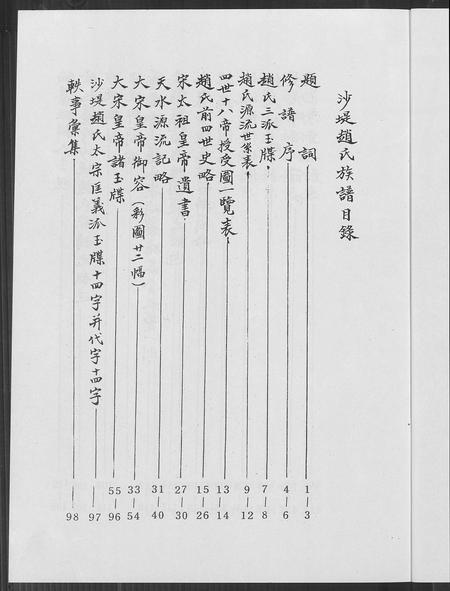 沙堤趙氏族譜目錄
題詞 1—3
修譜序 4—6
趙氏三派玉牒 7—8
趙氏源流世系表 9—12
四世十八帝授受圖一覽表 13—14
趙氏前四世史略 15—26
宋太祖皇帝遺書 27—30
天水源流記略 31—40
大宋皇帝御容(彩圖廿二幅) 33—54
大宋皇帝諸玉牒 55—96
沙堤趙氏太宗匡義派玉牒十四字并代字十四字 97
軼事彙集 98